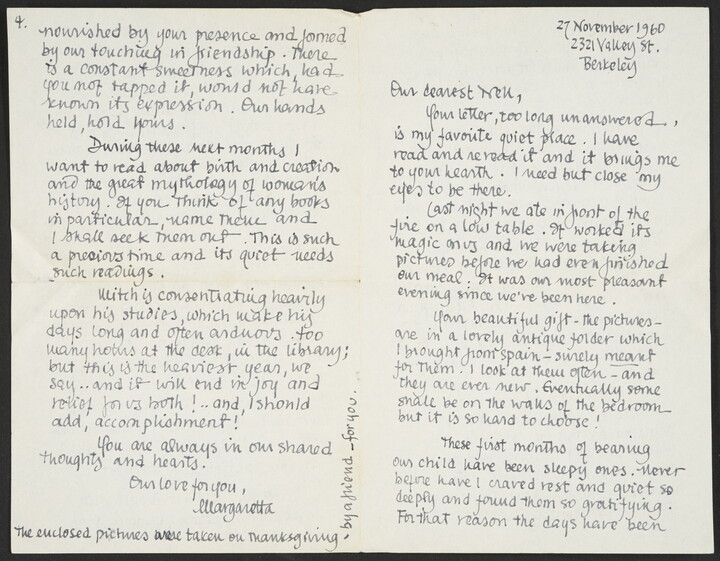 27 November 1960
2321 Valley St.
Berkeley
Our dearest Nell,
Your letter, too long unanswered,
is my favorite quiet place. I have
read and reread it and it brings me
to your hearth. I need but close my
eyes to be there.
Last night we ate in front of the
fire on a low table. It worked its
magic on us and we were taking
pictures before we had even finished
our meal. It was our most pleasant
evening since we've been here.
Your beautiful gift - the pictures -
are in a lovely antique folder which
I brought from Spain - surely meant
for them. I look at them often - and
they are ever new. Eventually some
shall be on the walls of the bedroom
but it is so hard to choose!
These first months of bearing
our child have been sleepy ones. Never
before have I craved rest and quiet so
deeply and found them so gratifying.
For that reason the days have been
4.
nourished by your presence and formed
by our touching in friendship. There
is a constant sweetness which, had
you not tapped it, would not have
known its expression. Our hands
held, hold yours.
During these next months I
want to read about birth and creation
and the great mythology of woman's
history. If you think of any books
in particular, name them and
I shall seek them out. This is such
a precious time and its quiet needs
such readings.
Mitch is consentrating heavily
upon his studies, which make his
days long and often arduous. Too
many hours at the desk, in the library;
but this is the heaviest year, we
say.. and it will end in joy and
relief for us both!.. and, I should
add, accomplishment!
You are always in our shared
thoughts and hearts.
Our love for you,
Margaretta
The enclosed pictures were taken on Thanksgiving,
by a friend - for you.